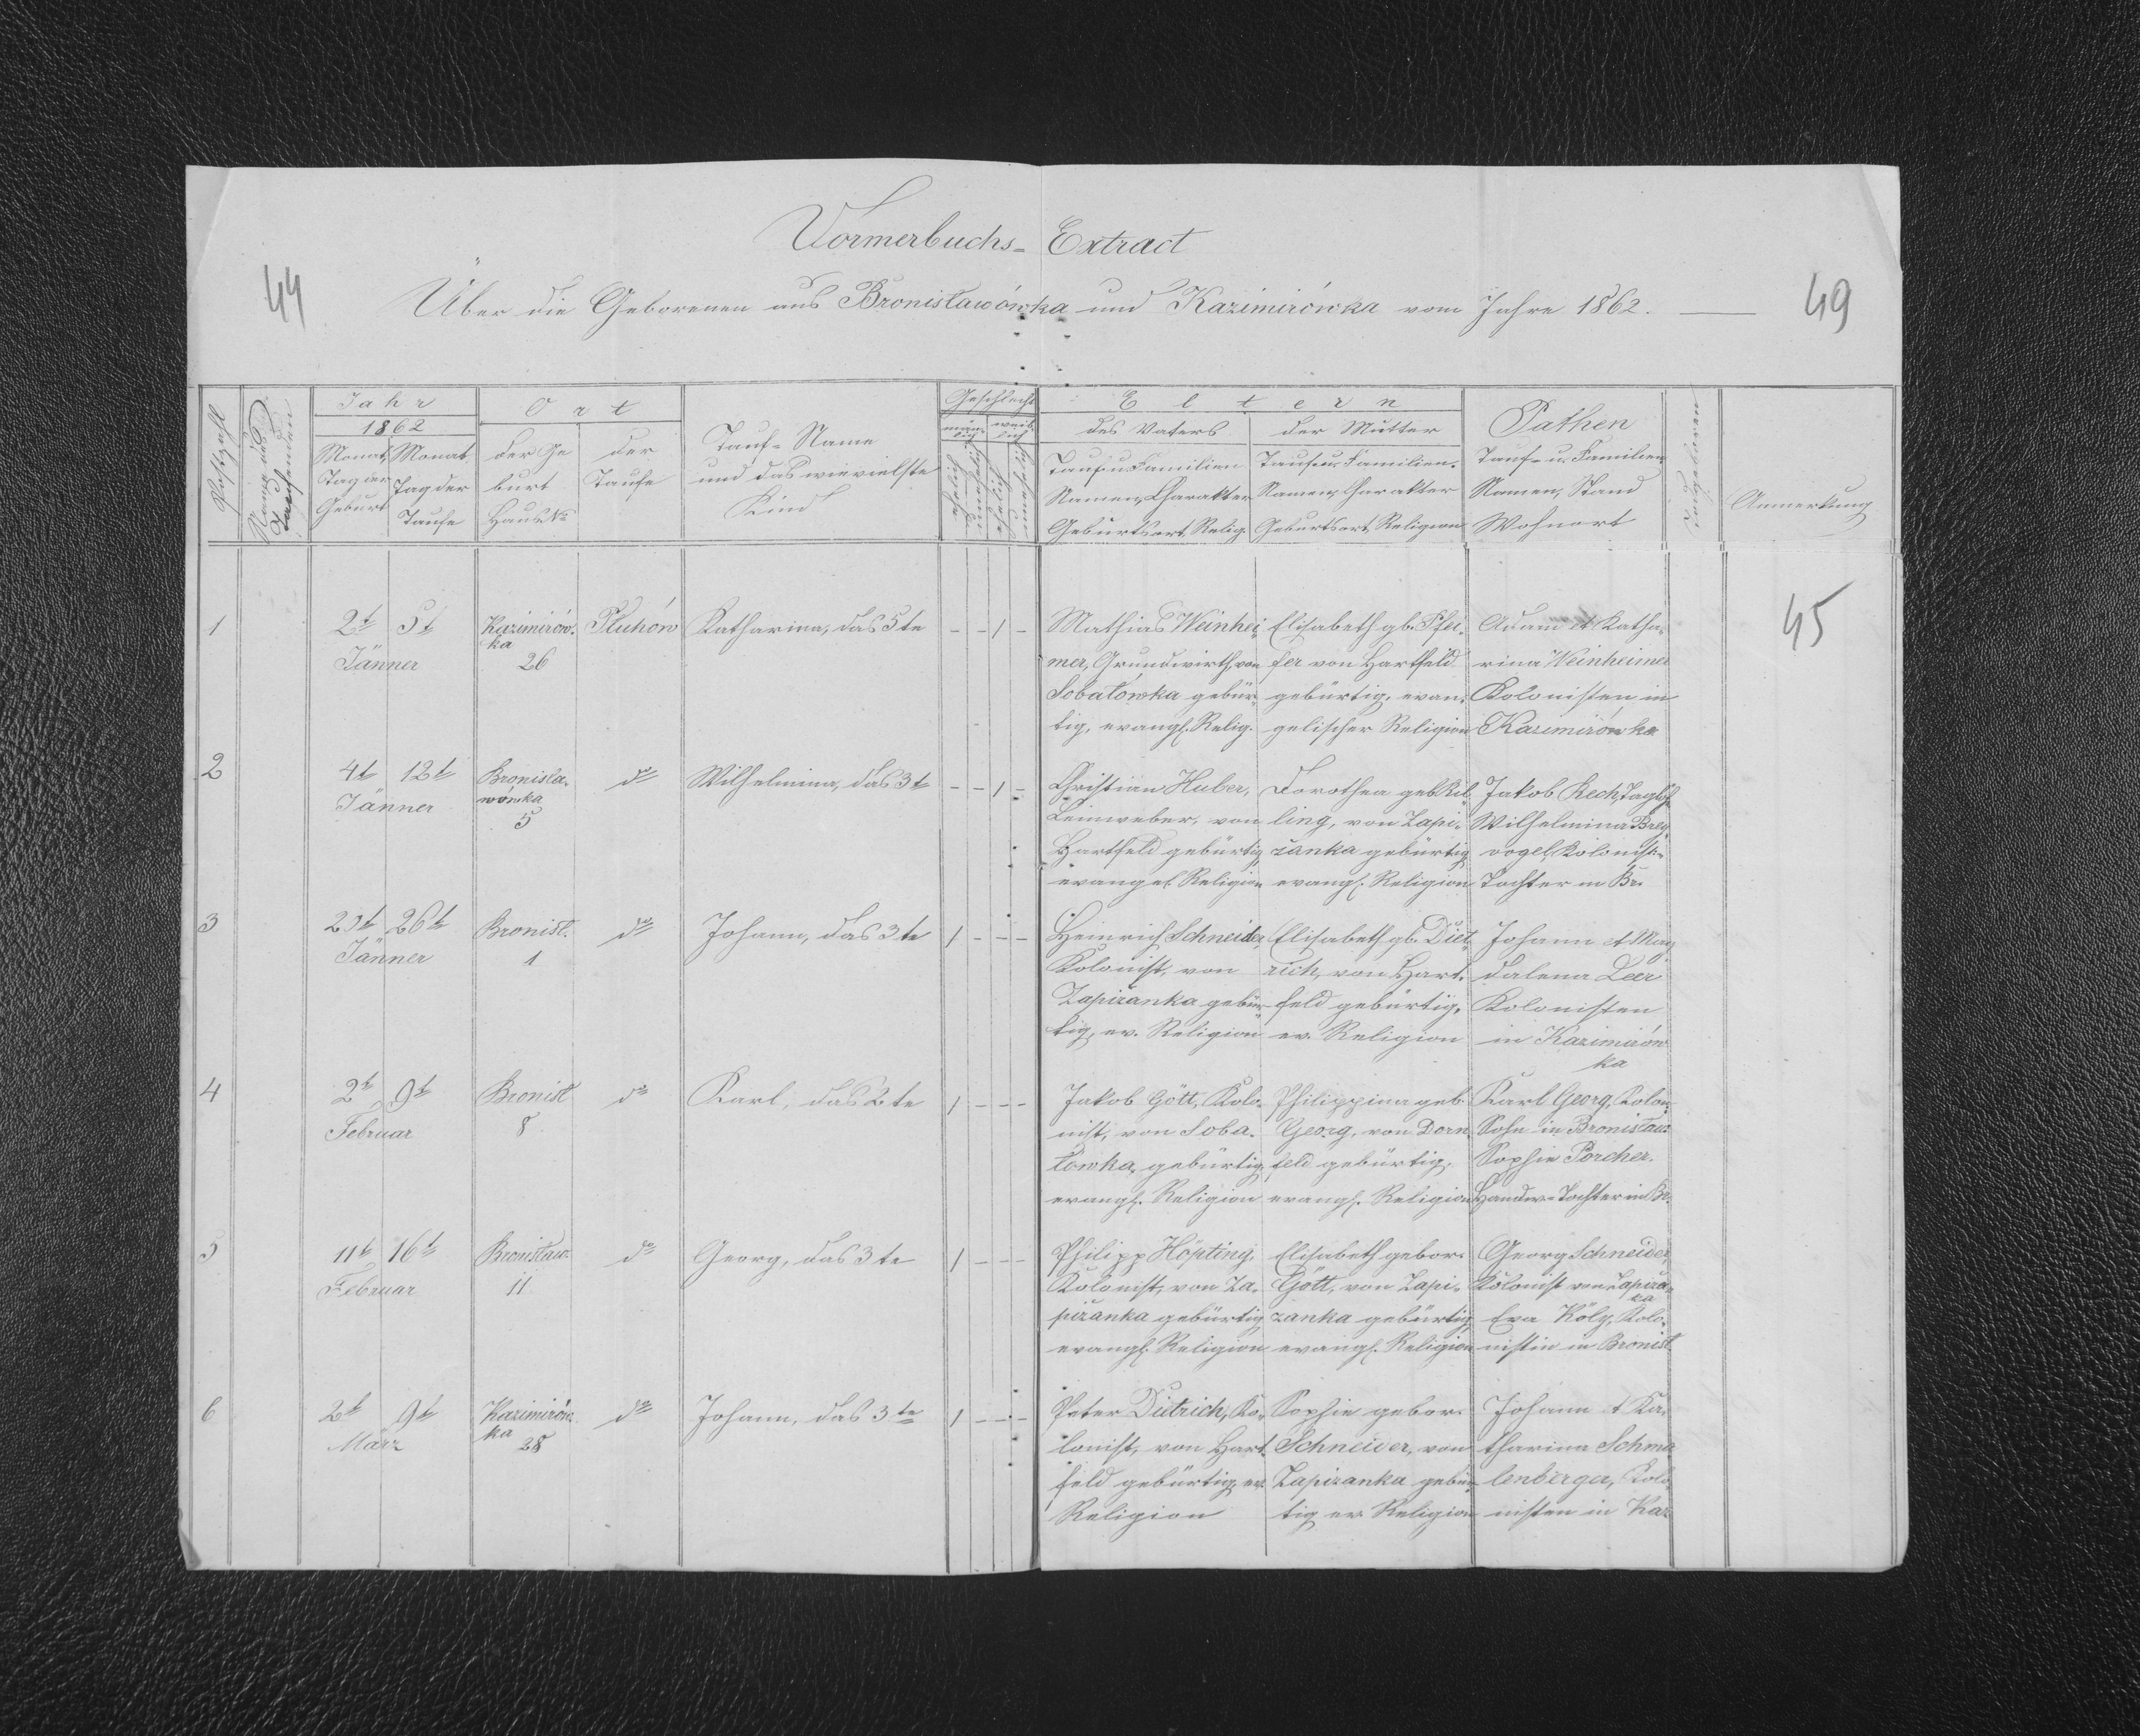 Vormerbuchs- Extract
44
Über die Geborenen aus Bronisławówka und Kazimirówka vom Jahre 1862.
49
Postzahl
Name des Taufenden
Jahr
1862
Monat, Tag der Geburt
Monat Tag der Taufe
Ort
der Geburt Haus N.
der Taufe
Tauf-Name
und das wievielste
Kind
Geschlecht
männlich
weiblich
ehelich
unehelich
ehelich
unehelich
Eltern
des Vaters
der Mutter
Tauf u Familien
Namen, Charakter
Geburtsort, Relig.
Tauf-u. Familien-
Namen, Charakter
Geburtsort, Religion
Pathen
Tauf- u. Familien
Namen, Stand
Wohnort
Todgeboren
Anmerkung
45
1
2t 5t
Jänner
Kazimirów-
ka
26
Płuhów
Katharina, das 5te
- - 1 -
Mathias Weinhei-
mer, Grundwirth, von
Sobatówka gebür-
tig, evangl. Relig.
Elisabeth gb. Pfei-
fer von Hartfeld
gebürtig, evan-
gelischer Religion
Adam et Katha-
rina Weinheimer
Kolonisten in
Kazimirówka
2
4t 12t
Jänner
Bronisla-
wówka
5
do
Wilhelmina, das 3t
- - 1 -
Christian Huber,
Leinweber, von
Hartfeld gebürtig
evangel. Religion
Dorothea geb. Kil-
ling, von Zapi-
zanka gebürtig
evangl. Religion
Jakob Rech, Taglöh.
Wilhelmina Brey-
vogel, Kolonist-
Tochter in Br.
3
20t 26t
Jänner
Bronisł.
1
do
Johann, das 3te
1 - - -
Heinrich Schneider
Kolonist, von
Zapizanka gebür-
tig, ev. Religion
Elisabeth gb. Diet-
rich, von Hart-
feld gebürtig,
ev. Religion
Johann et Mag-
dalena Leer
Kolonisten
in Kazimirów
ka
4
2t 9t
Februar
Bronisł
8
do
Karl, das 2te
1 - - -
Jakob Gött, Kolo-
nist, von Soba-
towka, gebürtig
evangl. Religion
Philippina geb.
Georg, von Dorn-
feld gebürtig,
evangl. Religion
Karl Georg, Kolon-
Sohn in Bronisław.
Sophie Porcher.
Handw-Tochter in Br.
5
11t 16t
Februar
Bronisław
11
do
Georg, das 3te
1 - - -
Philipp Höpting,
Kolonist, von Za-
pizanka gebürtig
evangl. Religion
Elisabeth gebor.
Gött, von Zapi-
zanka gebürtig
evangl. Religion
Georg Schneider,
Kolonist von Zapizan-
ka
Eva Köly, Kolo-
nistin in Bronisł.
6
2t 9t
März
Kazimirów-
ka
28
do
Johann, das 3te
1 - - -
Peter Dietrich, Ko-
lonist, von Hart-
feld gebürtig, ev.
Religion
Sophie gebor.
Schneider, von
Zapizanka gebür-
tig ev. Religion
Johann et Ka-
tharina Schma-
lenberger, Kolo-
nisten in Kaz